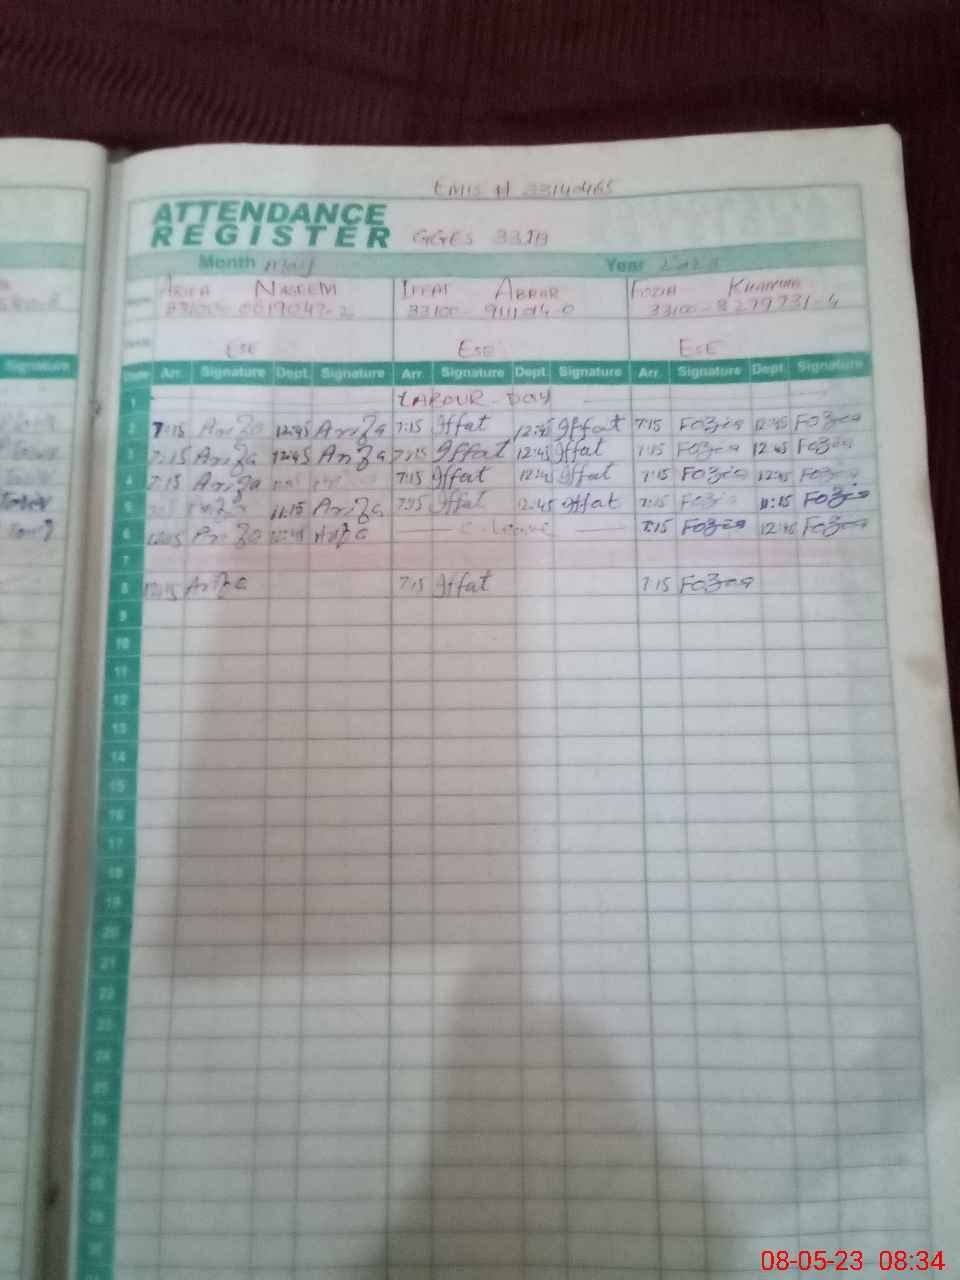 EMIS # 33140465
ATTENDANCE
REGISTER GGES 33JB
Month May Year
Name NASEEM IFFAT ABRAR FOZIA KHANUM
33100-0619047-2 33100- 33100-8279731-4
ESE ESE ESE
Date Arr. Signature Dept. Signature Arr. Signature Dept. Signature Arr. Signature Dept. Signature
1 LABOUR DAY
2 7:15 Ariza 12:45 Ariza 7:15 Iffat 12:45 Iffat 7:15 Fozia 12:45 Fozia
3 7:15 Ariza 12:45 Ariza 7:15 Iffat 12:45 Iffat 7:15 Fozia 12:45 Fozia
4 7:15 Ariza 7:15 Iffat 12:45 Iffat 7:15 Fozia 12:45 Fozia
5 11:15 Ariza 7:15 Iffat 12:45 Iffat 7:15 Fozia 11:15 Fozia
6 Ariza 12:45 Ariza C. Leave 7:15 Fozia 12:45 Fozia
7
8 Ariza 7:15 Iffat 7:15 Fozia
9
10
11
12
13
14
15
16
17
18
19
20
21
22
23
24
25
26
27
28
29
30
Signature
08-05-23 08:34